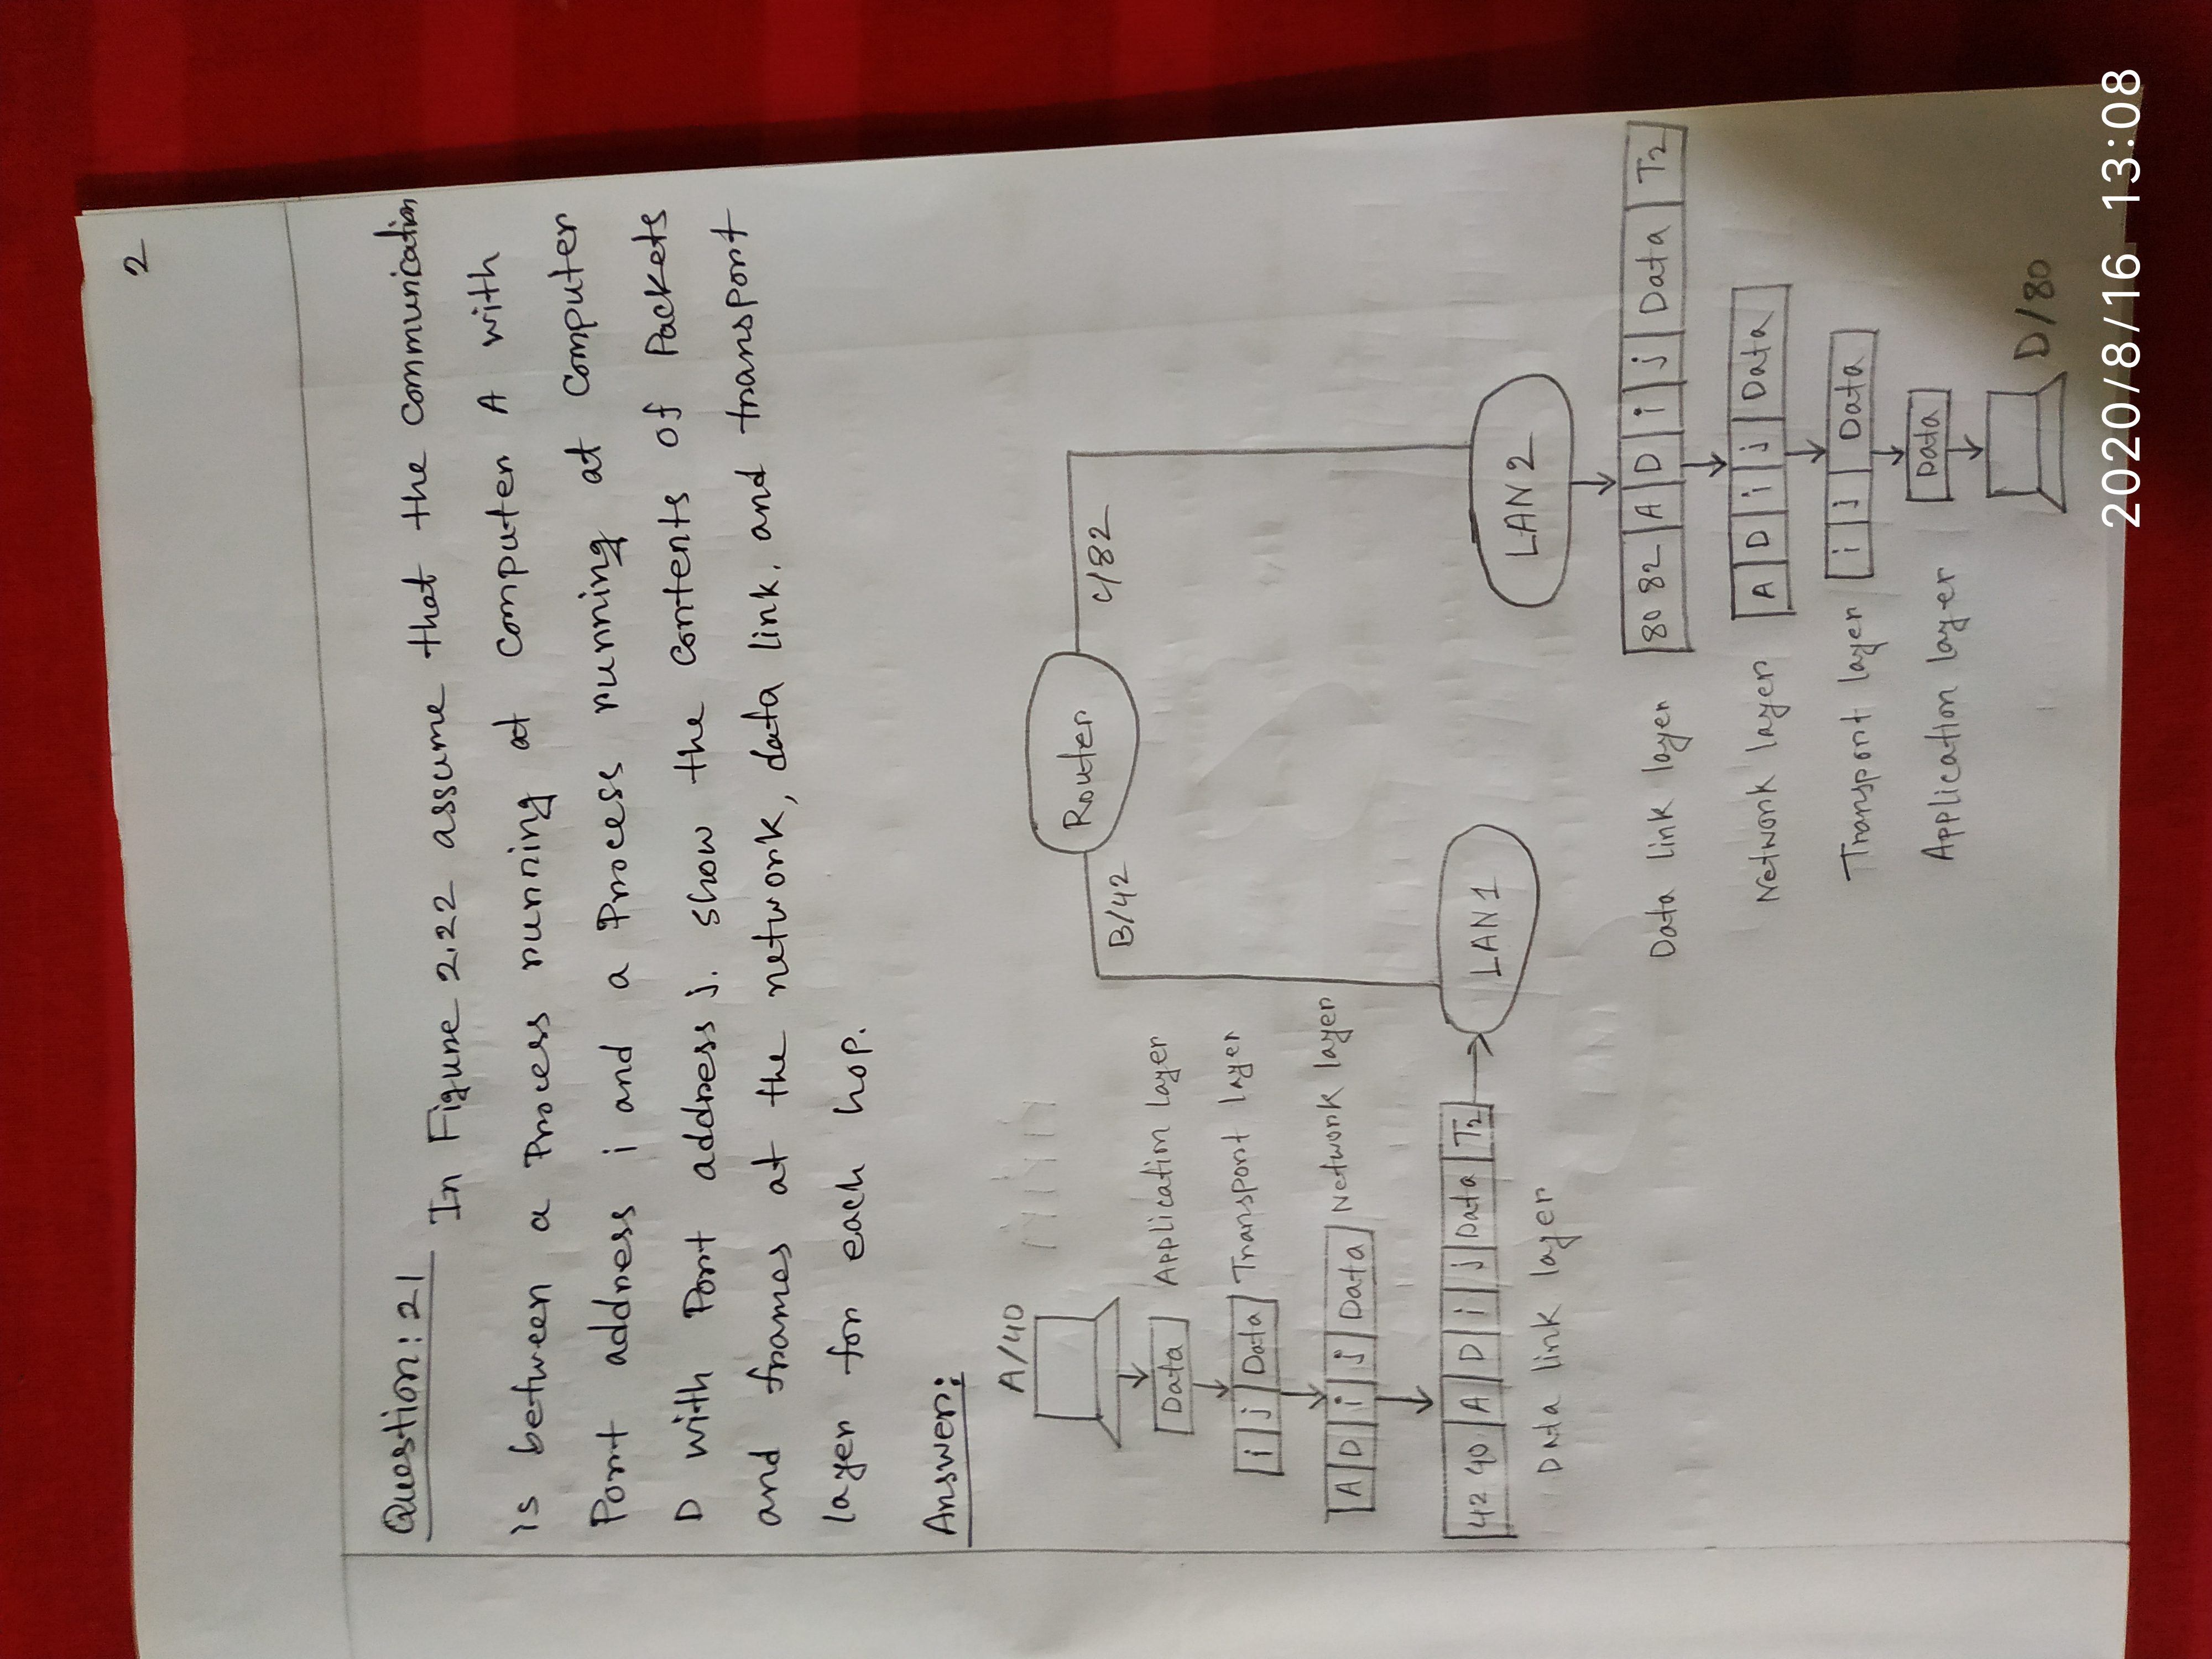 2
Question: 21
In Figure 2.22 assume that the communication
is between a Process running at computer A with
Port address i and a Process running at computer
D with Port address j. show the contents of Packets
and frames at the network, data link, and transport
layer for each hop.
Answer:
A/40
Router
B/42
C/82
Data Application layer
i j Data Transport layer
A D i j Data Network layer
42 40 A D i j Data T2
LAN 1
Data link layer
LAN 2
Data link layer 80 82 A D i j Data T2
Network layer A D i j Data
Transport layer i j Data
Application layer Data
D/80
2020/8/16 13:08